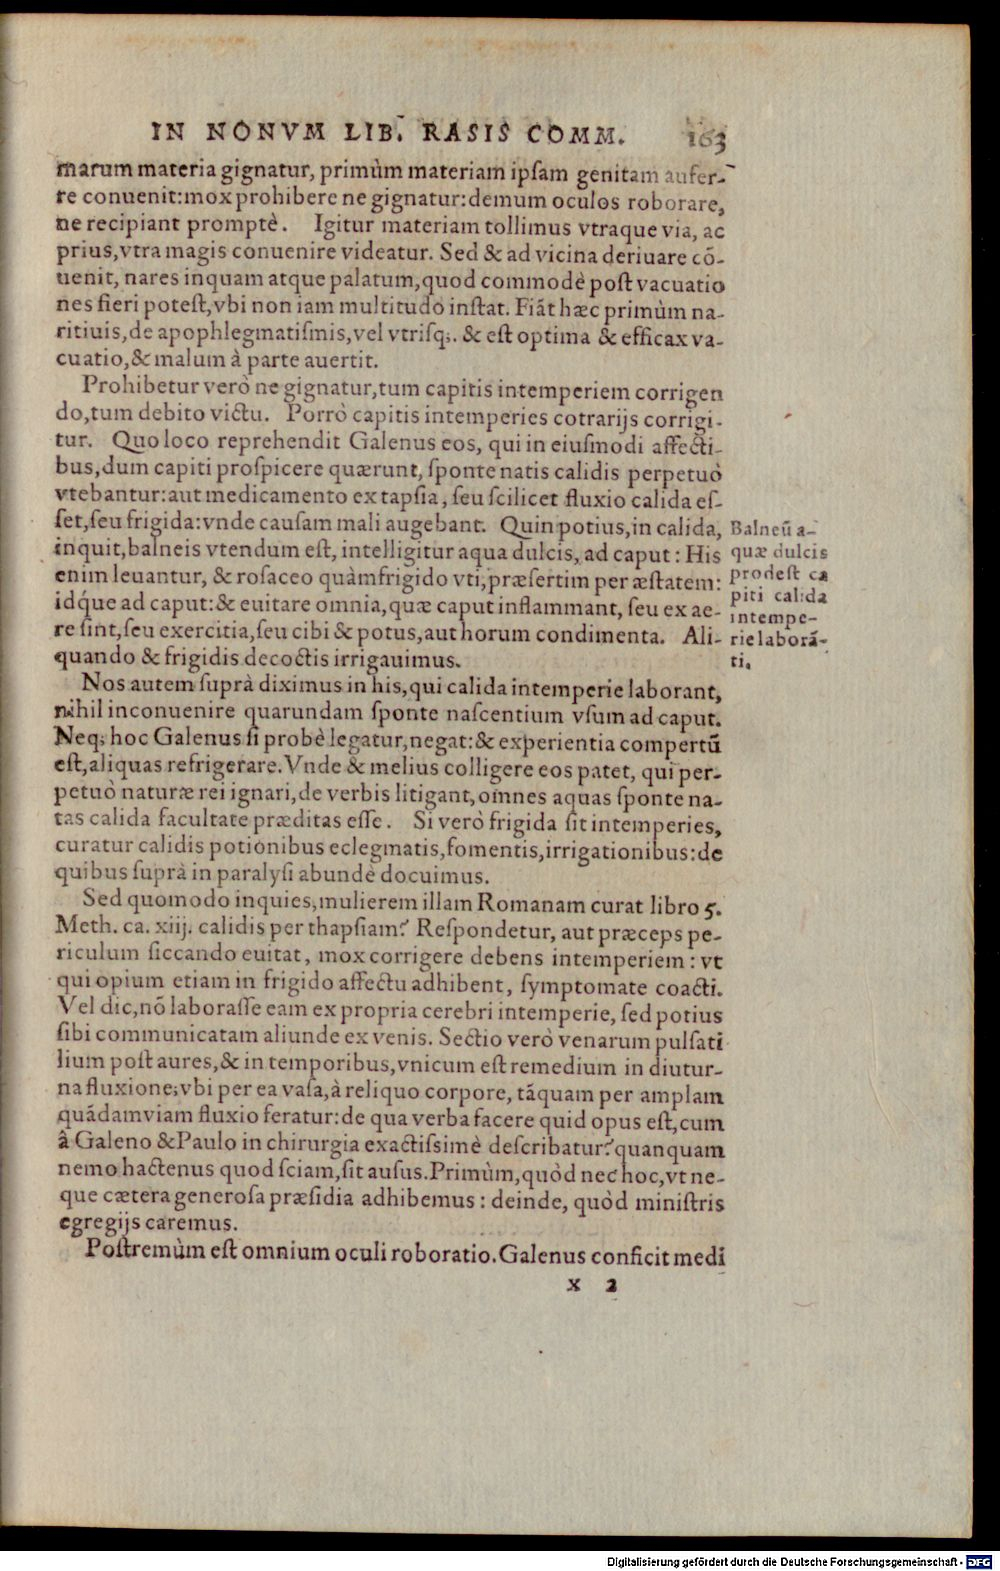 IN NONVM LIB. RASIS COMM. 163
marum materia gignatur, primùm materiam ipſam genitam aufer-
re conuenit:mox prohibere ne gignatur:demum oculos roborare,
ne recipiant promptè. Igitur materiam tollimus vtraque via, ac
prius,vtra magis conuenire videatur. Sed & ad vicina deriuare cō-
uenit, nares inquam atque palatum,quod commodè poſt vacuatio
nes fieri poteſt,vbi non iam multitudo inſtat. Fiāt hæc primùm na-
ritiuis,de apophlegmatiſmis,vel vtriſq;. & eſt optima & efficax va-
cuatio,& malum à parte auertit.
Prohibetur verò ne gignatur,tum capitis intemperiem corrigen
do,tum debito victu. Porrò capitis intemperies cotrarijs corrigi-
tur. Quo loco reprehendit Galenus eos, qui in eiuſmodi affecti-
bus,dum capiti proſpicere quærunt, ſponte natis calidis perpetuò
vtebantur:aut medicamento ex tapſia, ſeu ſcilicet fluxio calida eſ-
ſet,ſeu frigida:vnde cauſam mali augebant. Quin potius,in calida,
inquit,balneis vtendum eſt, intelligitur aqua dulcis, ad caput: His
enim leuantur, & roſaceo quàmfrigido vti,præſertim per æſtatem:
idq́ue ad caput:& euitare omnia,quæ caput inflammant, ſeu ex ae-
re ſint,ſeu exercitia,ſeu cibi & potus,aut horum condimenta. Ali-
quando & frigidis decoctis irrigauimus.
Balneū a-
quæ dulcis
prodeſt ca
piti calida
intempe-
rie laborā-
ti.
Nos autem ſuprà diximus in his,qui calida intemperie laborant,
nihil inconuenire quarundam ſponte naſcentium vſum ad caput.
Neq; hoc Galenus ſi probè legatur,negat:& experientia compertū
eſt,aliquas refrigerare.Vnde & melius colligere eos patet, qui per-
petuò naturæ rei ignari,de verbis litigant,omnes aquas ſponte na-
tas calida facultate præditas eſſe. Si verò frigida ſit intemperies,
curatur calidis potionibus eclegmatis,fomentis,irrigationibus:de
quibus ſuprà in paralyſi abundè docuimus.
Sed quomodo inquies,mulierem illam Romanam curat libro 5.
Meth. ca. xiij. calidis per thapſiam? Reſpondetur, aut præceps pe-
riculum ſiccando euitat, mox corrigere debens intemperiem: vt
qui opium etiam in frigido affectu adhibent, ſymptomate coacti.
Vel dic,nō laboraſſe eam ex propria cerebri intemperie, ſed potius
ſibi communicatam aliunde ex venis. Sectio verò venarum pulſati
lium poſt aures,& in temporibus,vnicum eſt remedium in diutur-
na fluxione,vbi per ea vaſa,à reliquo corpore, tāquam per amplam
quādamviam fluxio feratur:de qua verba facere quid opus eſt,cum
â Galeno & Paulo in chirurgia exactiſsimè deſcribatur?quanquam
nemo hactenus quod ſciam,ſit auſus.Primùm,quòd nec hoc,vt ne-
que cætera generoſa præſidia adhibemus: deinde, quòd miniſtris
egregijs caremus.
Poſtremùm eſt omnium oculi roboratio.Galenus conficit medi
x 2
Digitalisierung gefördert durch die Deutsche Forschungsgemeinschaft - DFG